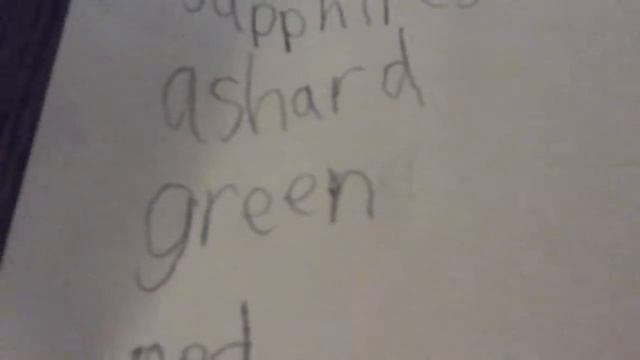 sapphires
ashard
green